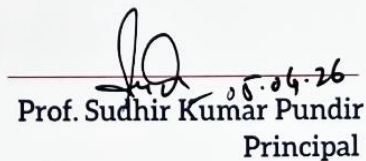 05.04.26
Prof. Sudhir Kumar Pundir
Principal